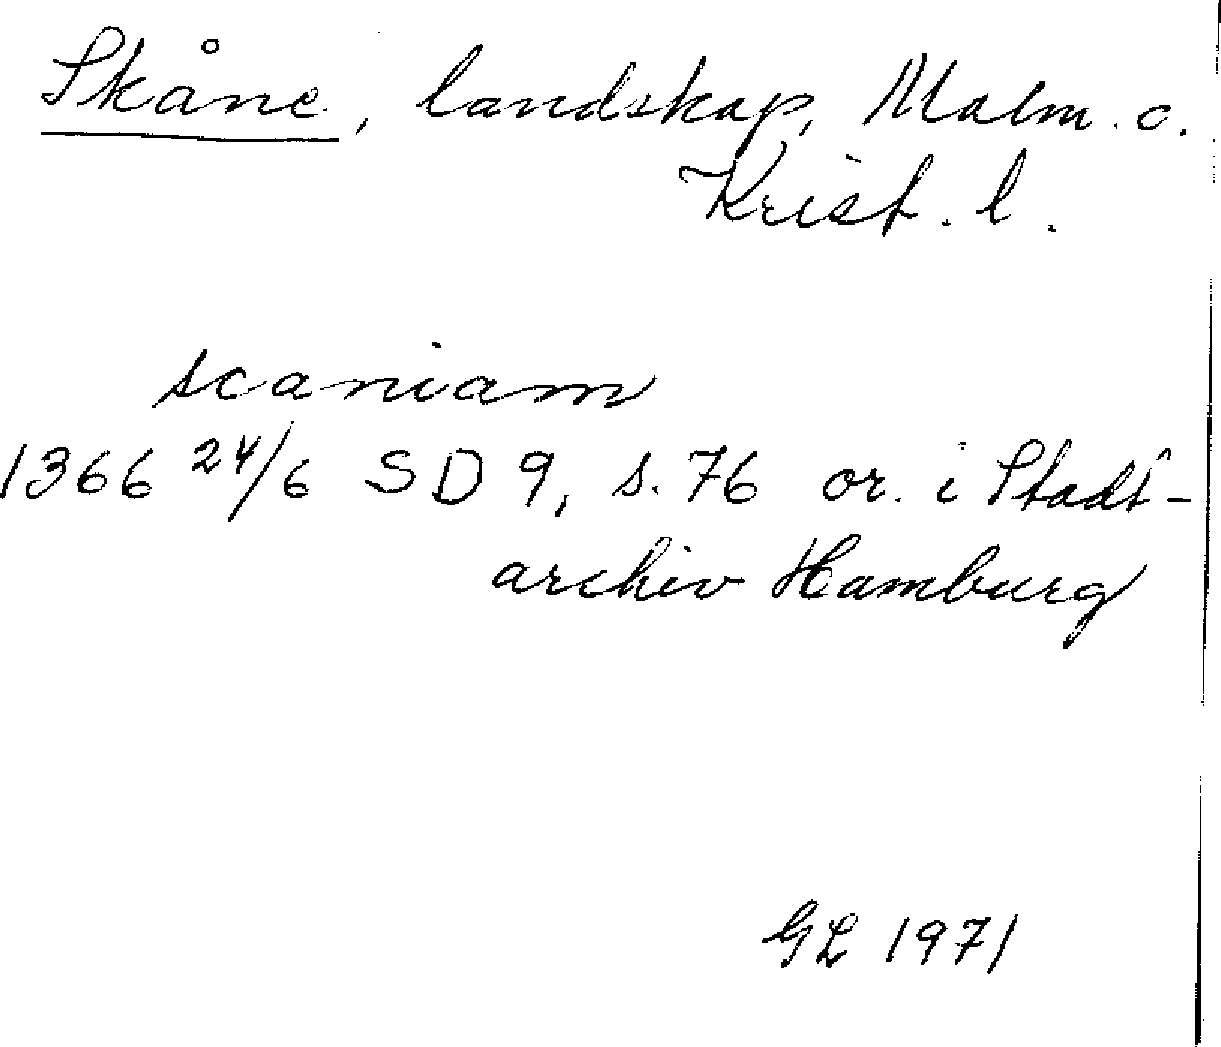 Skåne, landskap, Malm. o.
Krist. l.
scaniam
1366 24/6 SD 9, s. 76 or. i Stadt-
archiv Hamburg
GL 1971